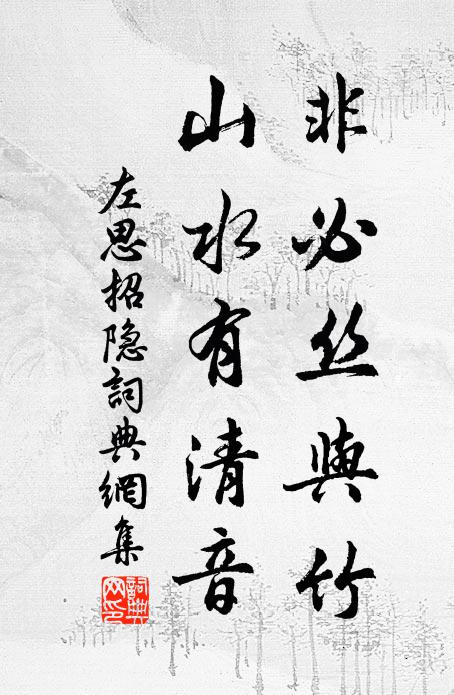 非必丝與竹
山水有清音
左思招隐詞典網集
詞典網印